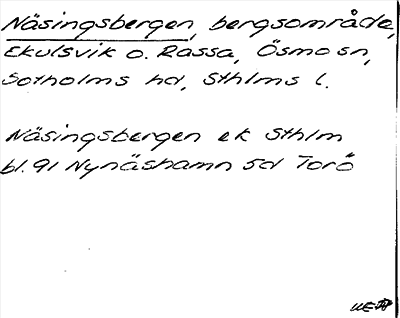 Näsingsbergen, bergsområde,
Ekulsvik o. Rassa, Ösmo sn,
Sotholms hd, Sthlms l.
Näsingsbergen ek Sthlm
bl. 91 Nynäshamn 5d Torö